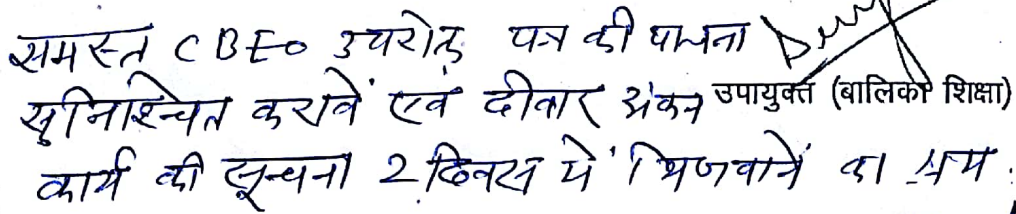 समस्त CBEO उपरोक्त पत्र की पालना
सुनिश्चित करावें एवं दीवार अंकन उपायुक्त (बालिका शिक्षा)
कार्य की सूचना 2 दिवस में भिजवानें का श्रम